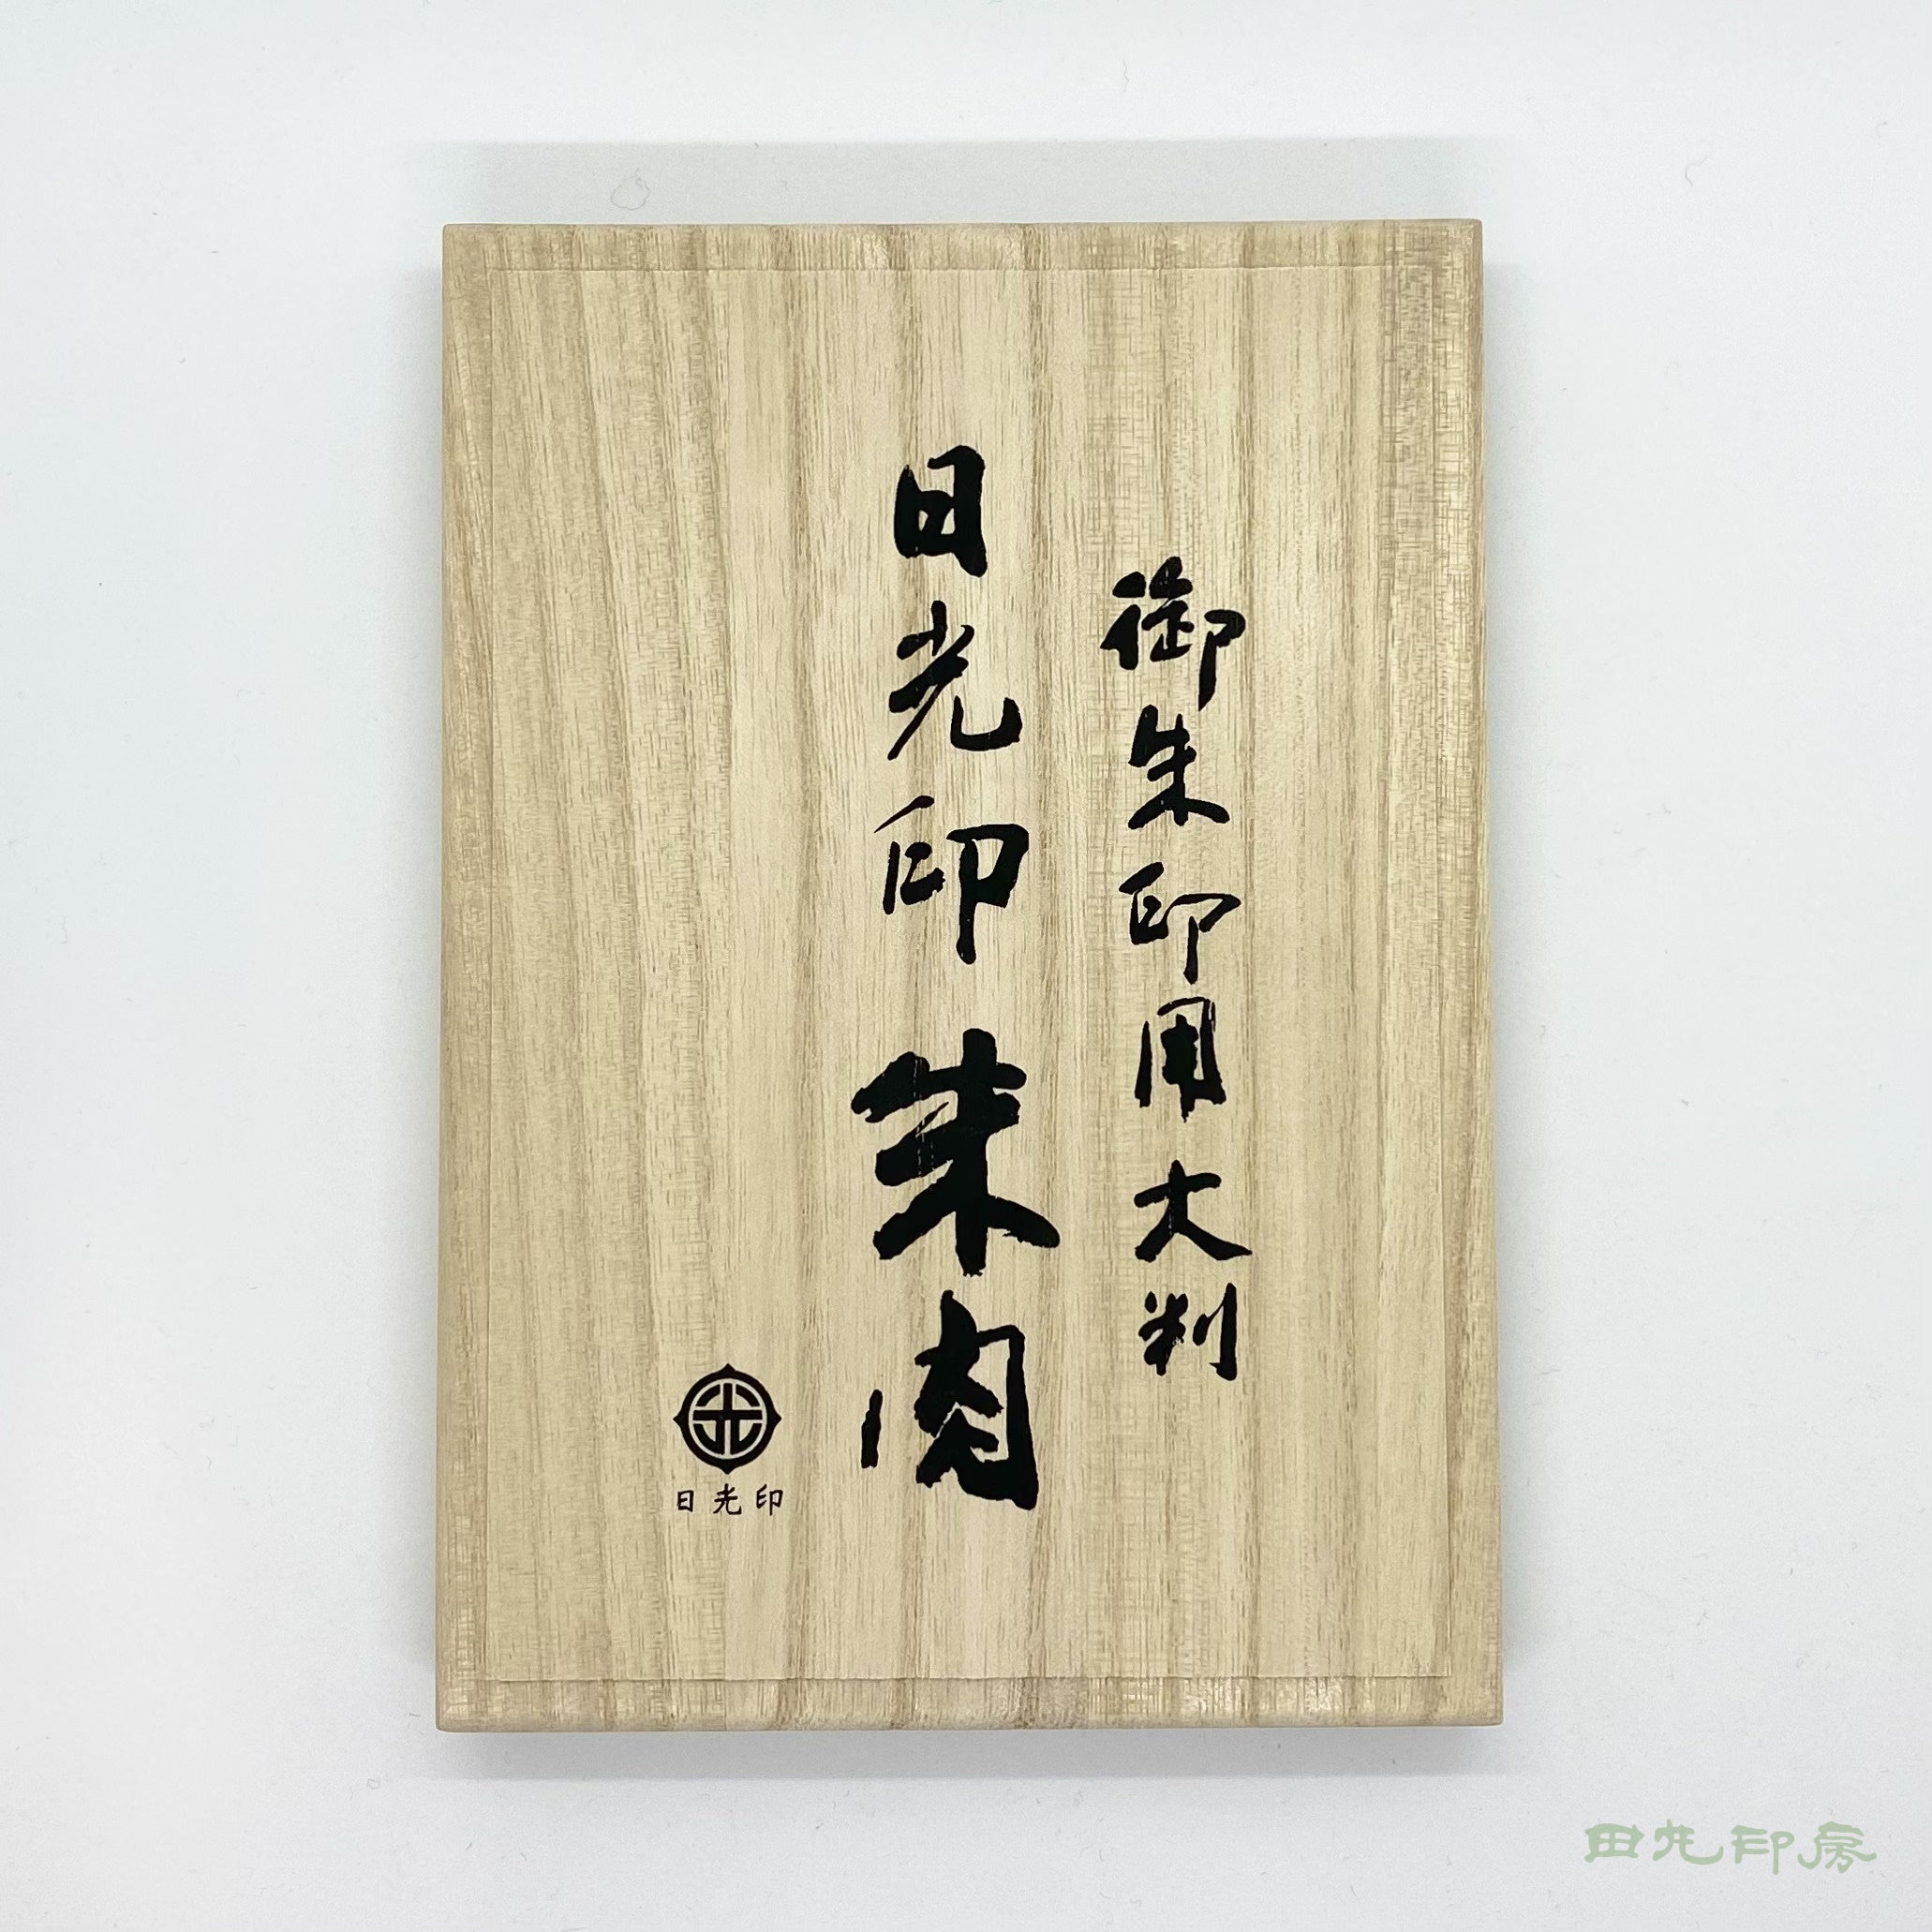 御朱印用大判
日光印朱肉
日光印
田光印房